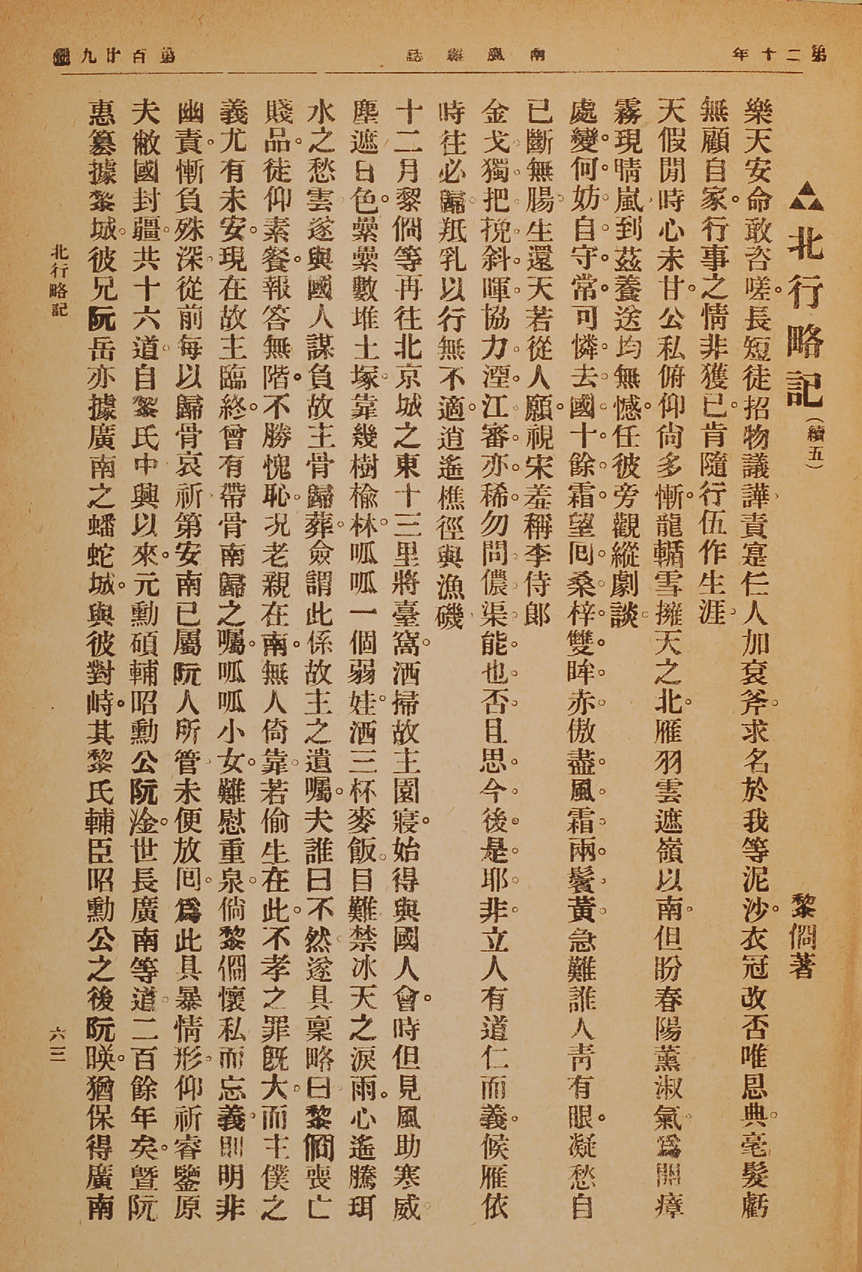 第二十年
南風雜誌
第百廿九號
北行略記（續五）
黎僩著
樂天安命敢咨嗟。長短徒招物議譁責寔仨人加袞斧。求名於我等泥沙。衣冠改否唯恩典。毫髮虧
無顧自家。行事之情非獲已。肯隨行伍作生涯
天假閒時心未甘。公私俯仰尙多慚。龍輴雪擁天之北。雁羽雲遮嶺以南。但盼春陽薰淑氣。爲開瘴
霧現晴嵐。到茲養送均無憾。任彼旁觀縱劇談
處變。何妨自守。常可憐。去國。十餘霜。望囘。桑梓。雙眸赤傲盡風霜兩。鬢黃。急難誰人靑有眼。凝愁自
已斷無腸。生還天若從人願。視宋羞稱李侍郎
金戈。獨把挽斜暉。協力。溼江審亦。稀。勿問。儂渠。能也。否。且思。今後。是耶。非。立人有道仁而義。候雁依
時往必歸。羝乳以行無不適。逍遙樵徑與漁磯
十二月黎僩等再往北京城之東十三里將臺窩。洒掃故主園寢。始得與國人會。時但見風助寒威。
塵遮日色。纍纍數堆土塚。靠幾樹榆林。呱呱一個弱娃。洒三杯麥飯。目難禁冰天之淚雨。心遙騰珥
水之愁雲遂與國人謀負故主骨歸葬。僉謂此係故主之遺囑。夫誰曰不然遂具稟略曰黎僩喪亡
賤品。徒仰素餐。報答無階。不勝愧恥。况老親在南。無人倚靠。若偷生在此。不孝之罪旣大。而主僕之
義尤有未安。現在故主臨終。曾有帶骨南歸之囑。呱呱小女。難慰重泉。倘黎僩懷私而忘義。則明非
幽責。慚負殊深。從前每以歸骨哀祈第安南已屬阮人所管未便放囘。爲此具暴情形。仰祈睿鑒原
夫敝國封疆。共十六道。自黎氏中興以來。元勳碩輔昭勳公阮淦。世長廣南等道。二百餘年矣。曁阮
惠簒據黎城。彼兄阮岳亦據廣南之蟠蛇城。與彼對峙。其黎氏輔臣昭勳公之後阮暎。猶保得廣南
北行略記
六三